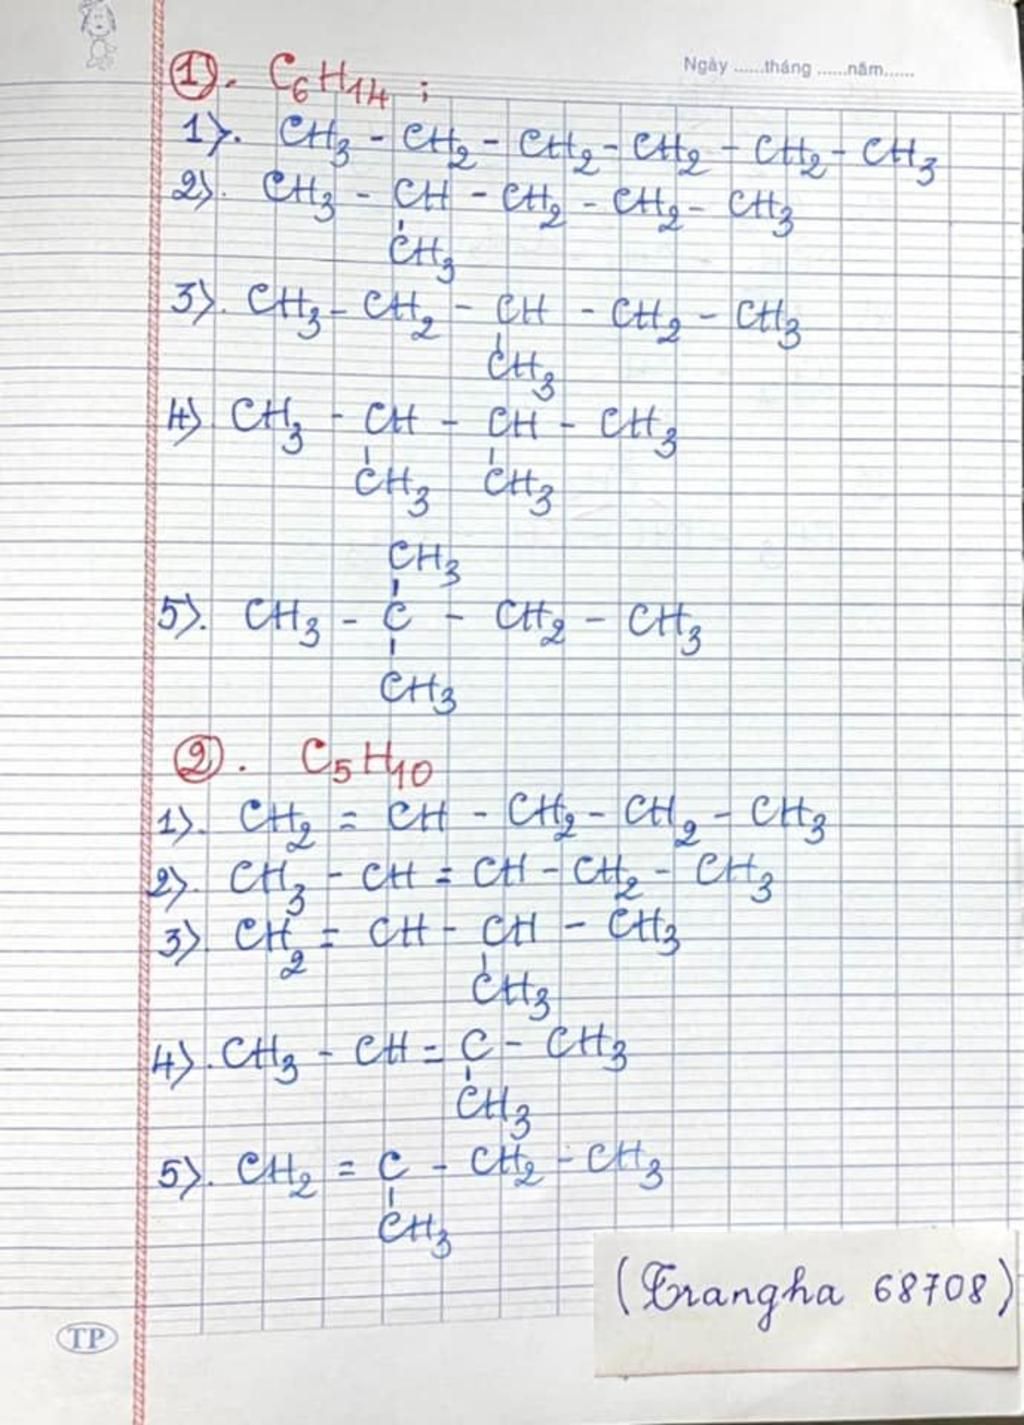 Ngày ......tháng ......năm......
①. C₆H₁₄ ;
1). CH₃ - CH₂ - CH₂ - CH₂ - CH₂ - CH₃
2). CH₃ - CH - CH₂ - CH₂ - CH₃
CH₃
3). CH₃ - CH₂ - CH - CH₂ - CH₃
CH₃
4) CH₃ - CH - CH - CH₃
CH₃ CH₃
CH₃
5). CH₃ - C - CH₂ - CH₃
CH₃
②. C₅H₁₀
1). CH₂ = CH - CH₂ - CH₂ - CH₃
2). CH₃ - CH = CH - CH₂ - CH₃
3) CH₂ = CH - CH - CH₃
CH₃
4). CH₃ - CH = C - CH₃
CH₃
5). CH₂ = C - CH₂ - CH₃
CH₃
(Trangha 68708)
TP